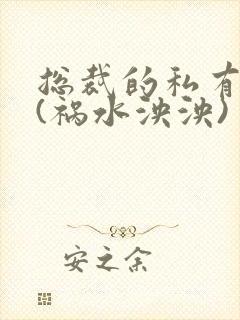 总裁的私有
(祸水泱泱)
安之余